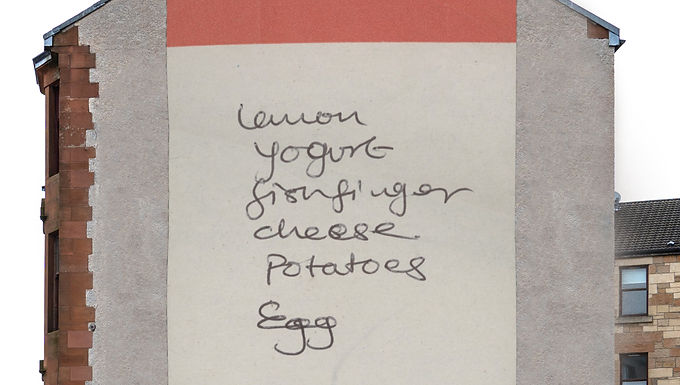 lemon
yogurt
fishfinger
cheese
Potatoes
Egg